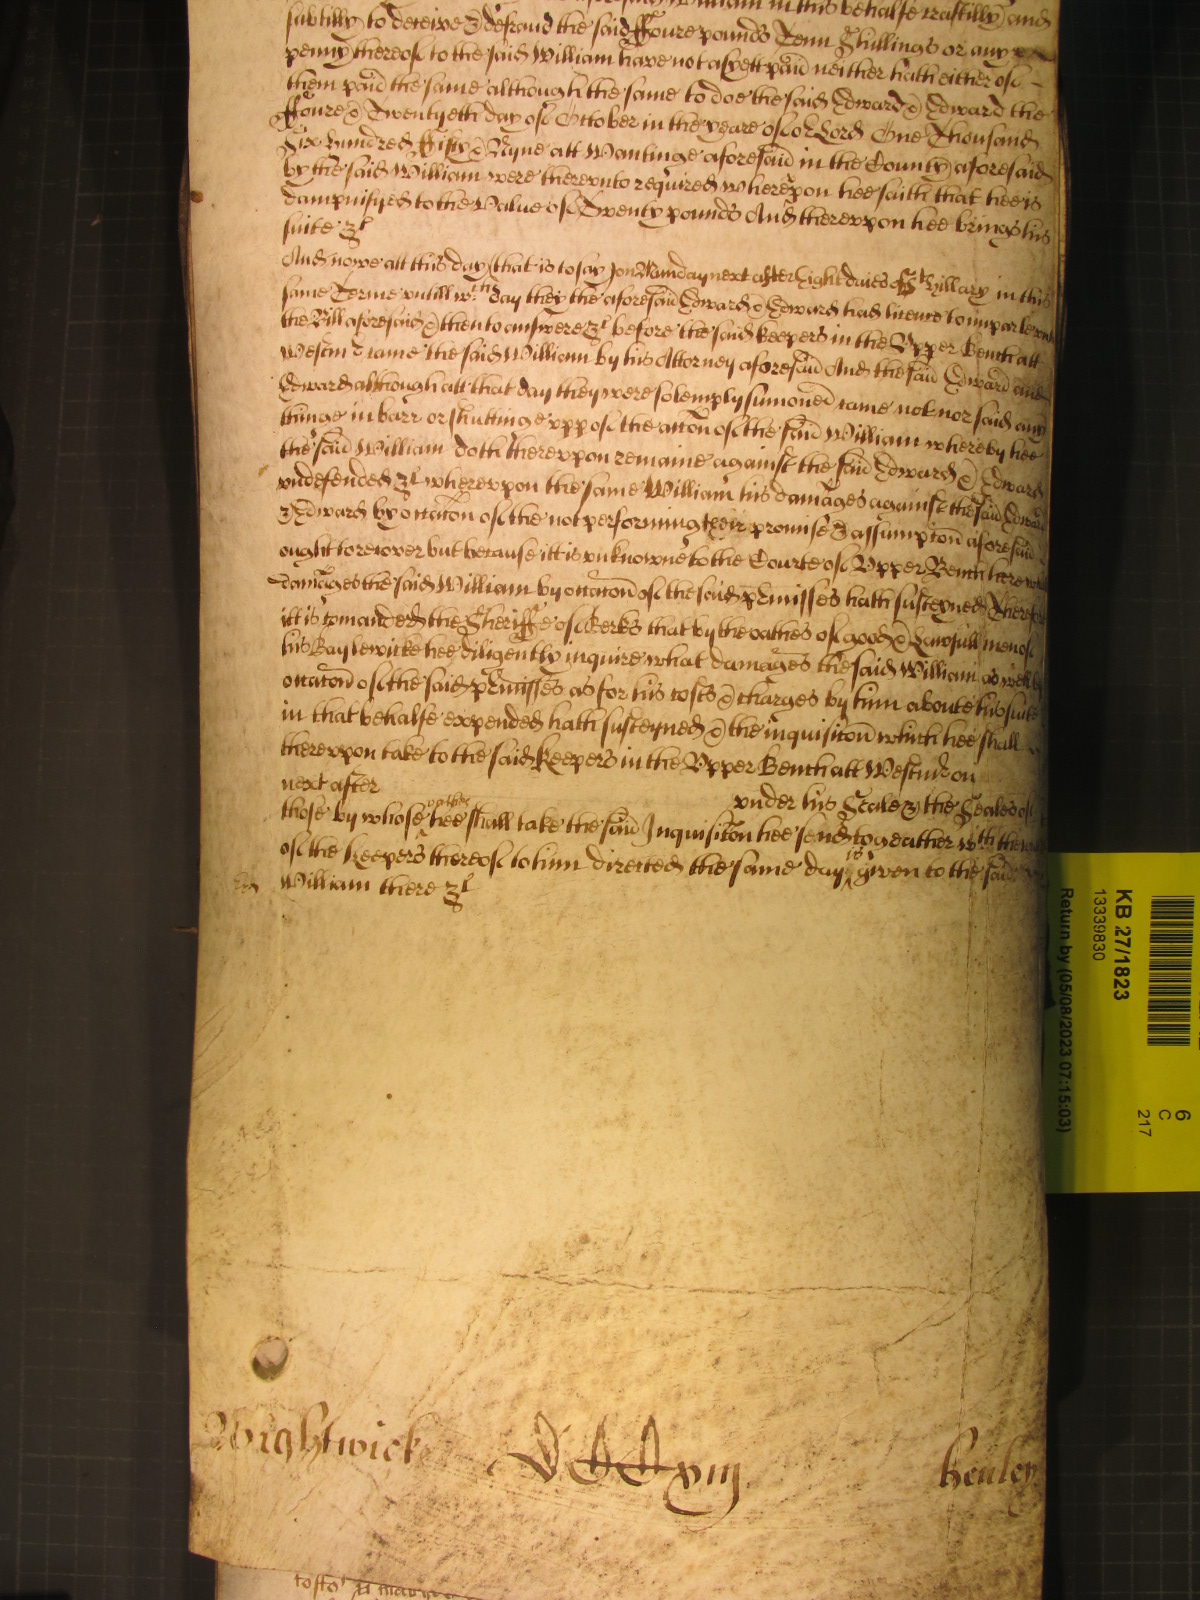 William in this behalfe craftilly and
subtilly to deceive & defraud the said ffoure pounds Tenn Shillings or any
penny thereof to the said William have not as yett paid neither hath either of
them paid the same although the same to doe the said Edward & Edward the
ffoure & Twentyeth day of October in the yeare of or Lord One Thousand
Six hundred ffifty & Nyne att Wantinge aforesaid in the County aforesaid
by the said William were therevnto required wherevpon hee saith that hee is
dampnifyed to the Value of Twenty pounds And therevpon hee brings his
suite &c
And nowe att this day (that is to say) on Munday next after Eight daies of St Hillary in this
same Terme vntill wch day they the aforesaid Edward & Edward had licence to imparle vnto
the Bill aforesaid & then to answere &c before the said keepers in the Vpper Bench att
Westmr came the said William by his Attorney aforesaid And the said Edward and
Edward although att that day they were solemply sumoned came not nor said any
thinge in barr or shuttinge vpp of the accon of the said William whereby hee
the said William doth therevpon remaine against the said Edward & Edward
vndefended &c wherevpon the same William his damages against the said Edward
& Edward by occacon of the not performing their promise & assumpcon aforesaid
ought to recover but because itt is vnknowne to the Courte of Vpper Bench here what
damages the said William by occacon of the said pmisses hath susteyned Therefore
itt is comanded the Sheriffe of Berks that by the oathes of good & Lawfull men of
his Baylewicke hee diligently inquire what damages the said William as well by
occacon of the said pmisses as for his costs & charges by him about his suite
in that behalfe expended hath susteyned & the inquisicon which hee shall
therevpon take to the said keepers in the Vpper Bench att Westmr on
next after vnder his Seale & the Seales of
those by whose oathes hee shall take the said Inquisicon hee send togeather wth the
of the keepers thereof to him directed the same day is given to the said
William there &c
Wightwick CCCxiij Henley
KB 27/1823
13339830
Return by (05/08/2023 07:15:03)
6
C
217